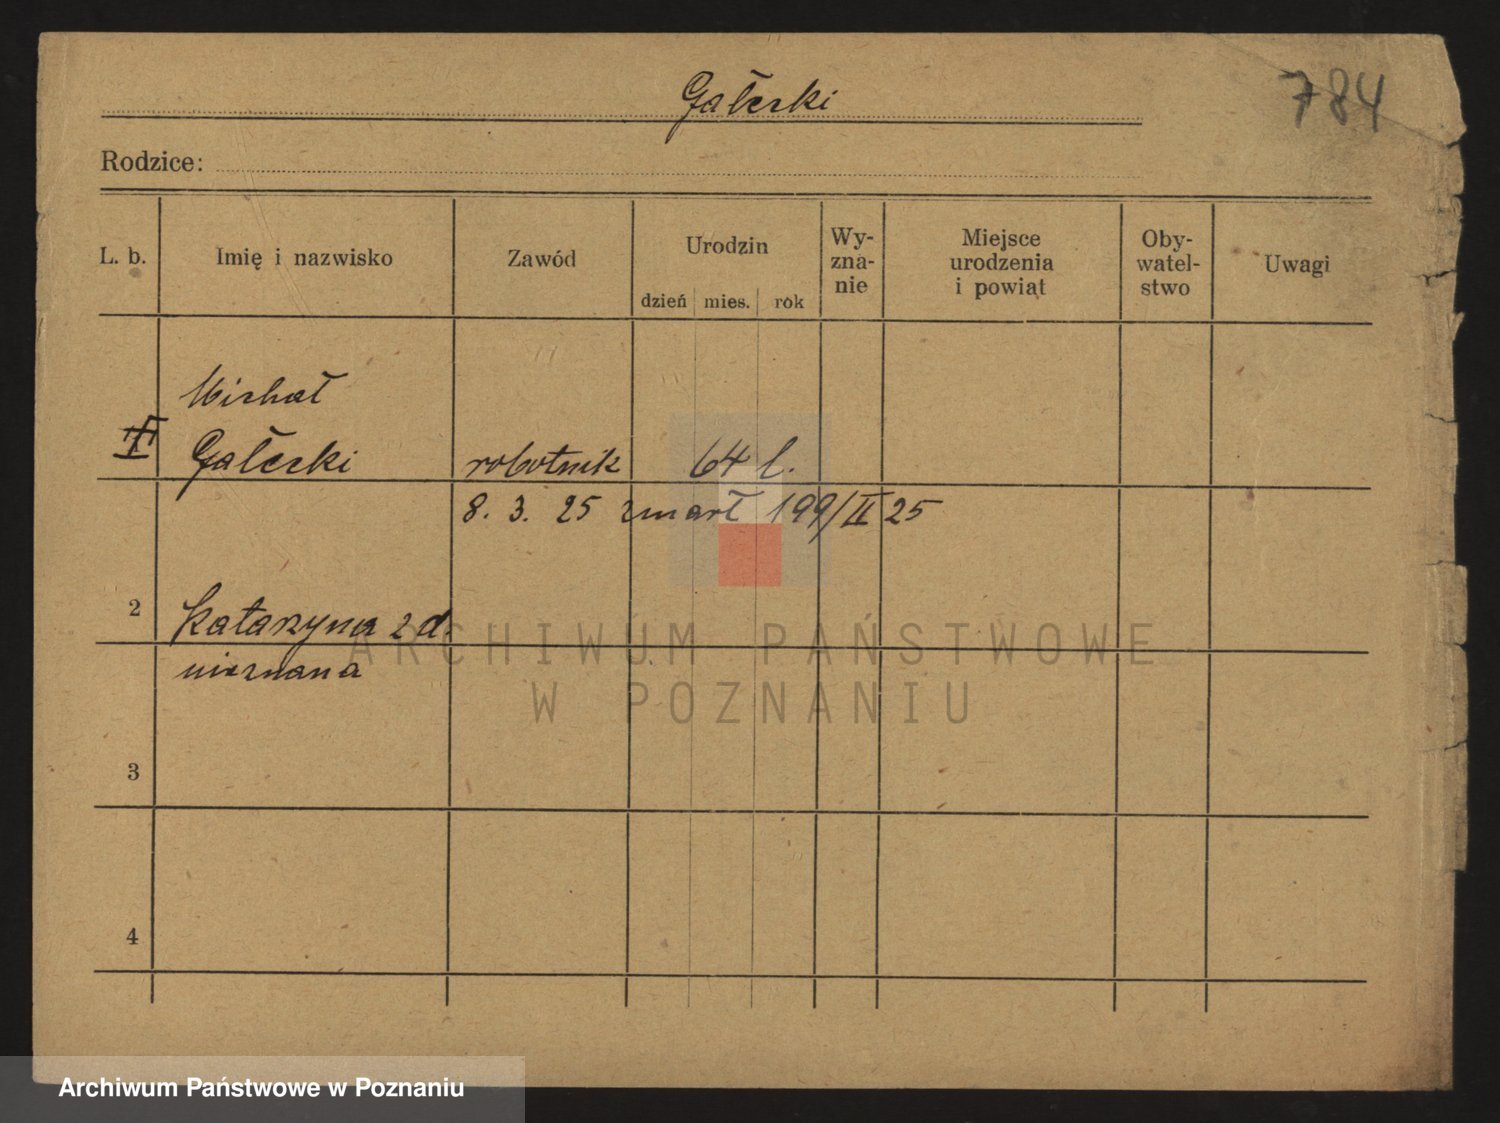 Gałecki
784
Rodzice:
L. b. Imię i nazwisko Zawód Urodzin dzień mies. rok Wy-zna-nie Miejsce urodzenia i powiat Oby-watel-stwo Uwagi
Michał
Gałecki robotnik 64 l.
8. 3. 25 zmarł 199/II 25
2 Katarzyna z d.
nieznana
3
4
ARCHIWUM PAŃSTWOWE
W POZNANIU
Archiwum Państwowe w Poznaniu